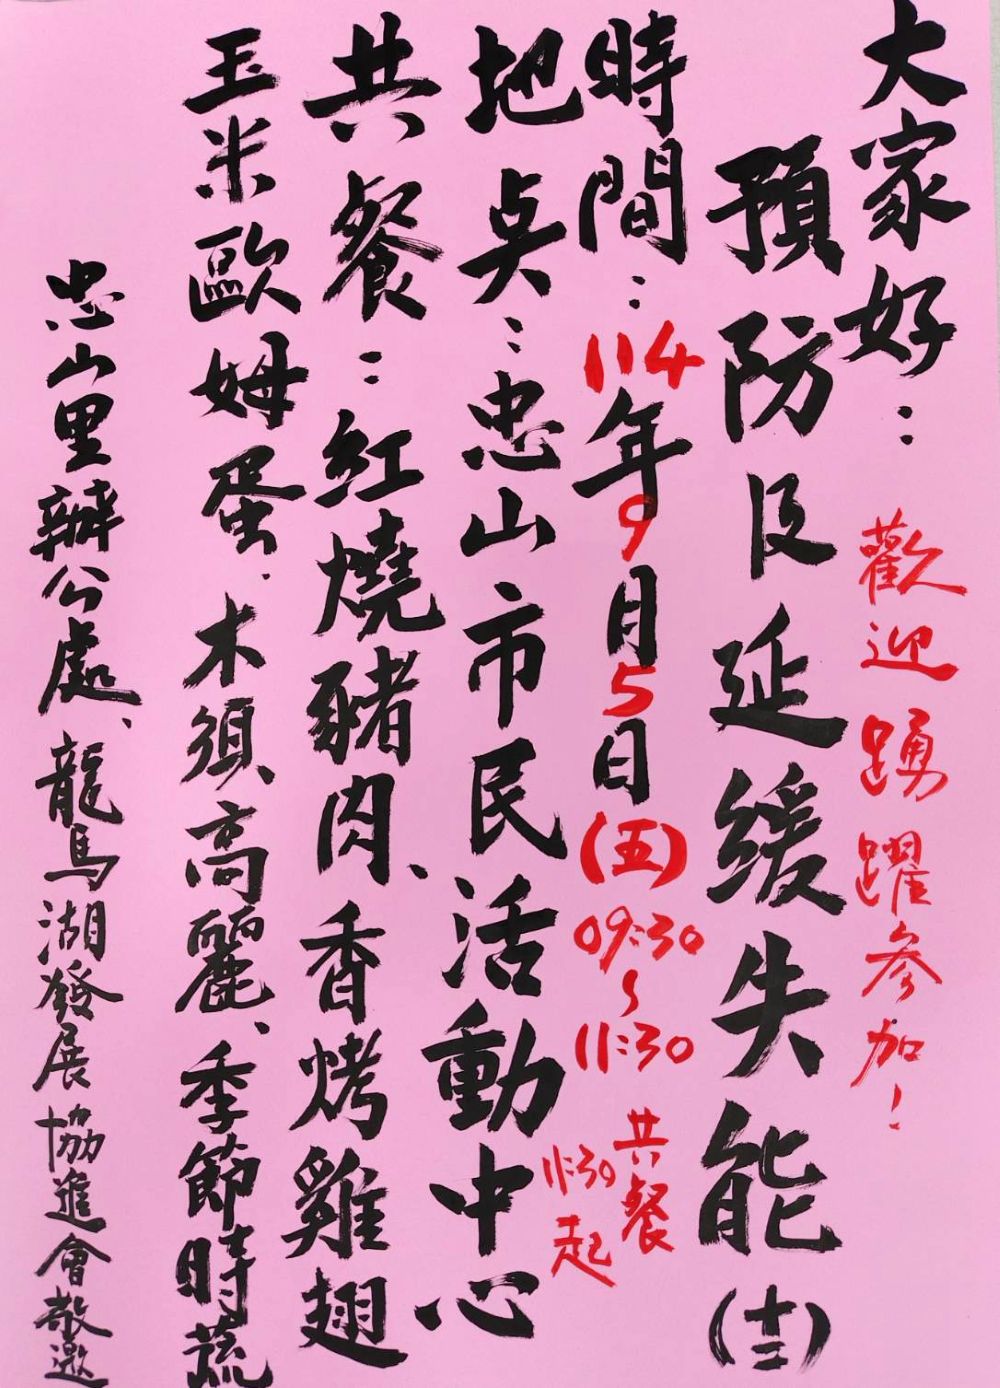 大家好：
歡迎踴躍參加！
預防及延緩失能(十二)
時間：114年9月5日(五)09:30~11:30
共餐
11:30起
地點：忠山市民活動中心
共餐：紅燒豬肉、香烤雞翅
玉米歐姆蛋.木須高麗、季節時蔬
忠山里辦公處、龍馬湖發展協進會敬邀